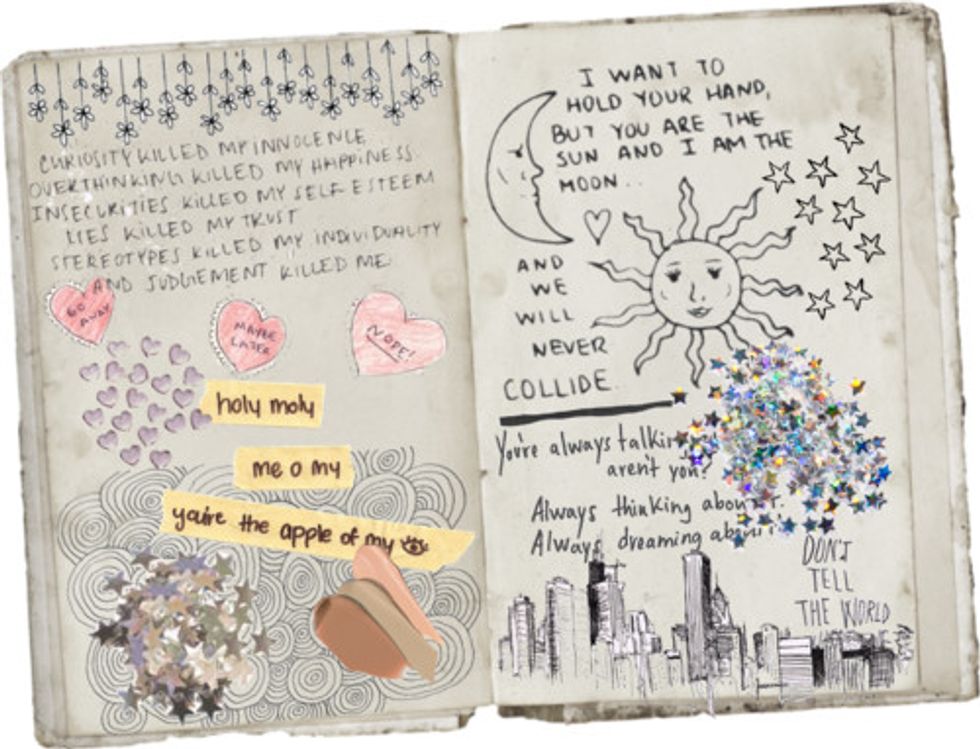 CURIOSITY KILLED MY INNOCENCE
OVERTHINKING KILLED MY HAPPINESS
INSECURITIES KILLED MY SELF ESTEEM
LIES KILLED MY TRUST
STEREOTYPES KILLED MY INDIVIDUALITY
AND JUDGEMENT KILLED ME
GO AWAY
MAYBE
LATER
NOPE!
holy moly
me o my
you're the apple of my
I WANT TO
HOLD YOUR HAND,
BUT YOU ARE THE
SUN AND I AM THE
MOON..
AND
WE
WILL
NEVER
COLLIDE.
You're always
aren't you?
Always thinking
Always dreaming
DON'T
TELL
THE WORLD